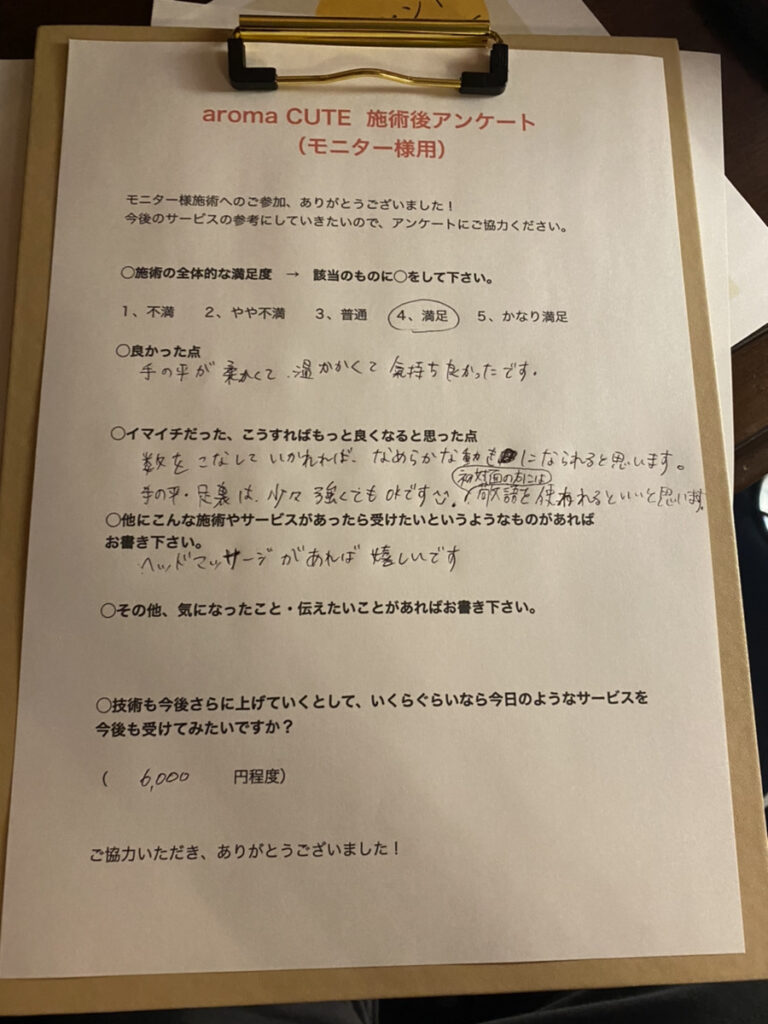 aroma CUTE 施術後アンケート
（モニター様用）
モニター様施術へのご参加、ありがとうございました！
今後のサービスの参考にしていきたいので、アンケートにご協力ください。
○施術の全体的な満足度 → 該当のものに○をして下さい。
1、不満 2、やや不満 3、普通 4、満足 5、かなり満足
○良かった点
手の平が柔かくて、温かかくて気持ち良かったです。
○イマイチだった、こうすればもっと良くなると思った点
数をこなしていかれれば、なめらかな動きになられると思います。
初対面の方には
手の平・足裏は、少々強くてもOKです。敬語を使われるといいと思います。
○他にこんな施術やサービスがあったら受けたいというようなものがあれば
お書き下さい。
ヘッドマッサージがあれば嬉しいです
○その他、気になったこと・伝えたいことがあればお書き下さい。
○技術も今後さらに上げていくとして、いくらぐらいなら今日のようなサービスを
今後も受けてみたいですか？
（ 6,000 円程度）
ご協力いただき、ありがとうございました！